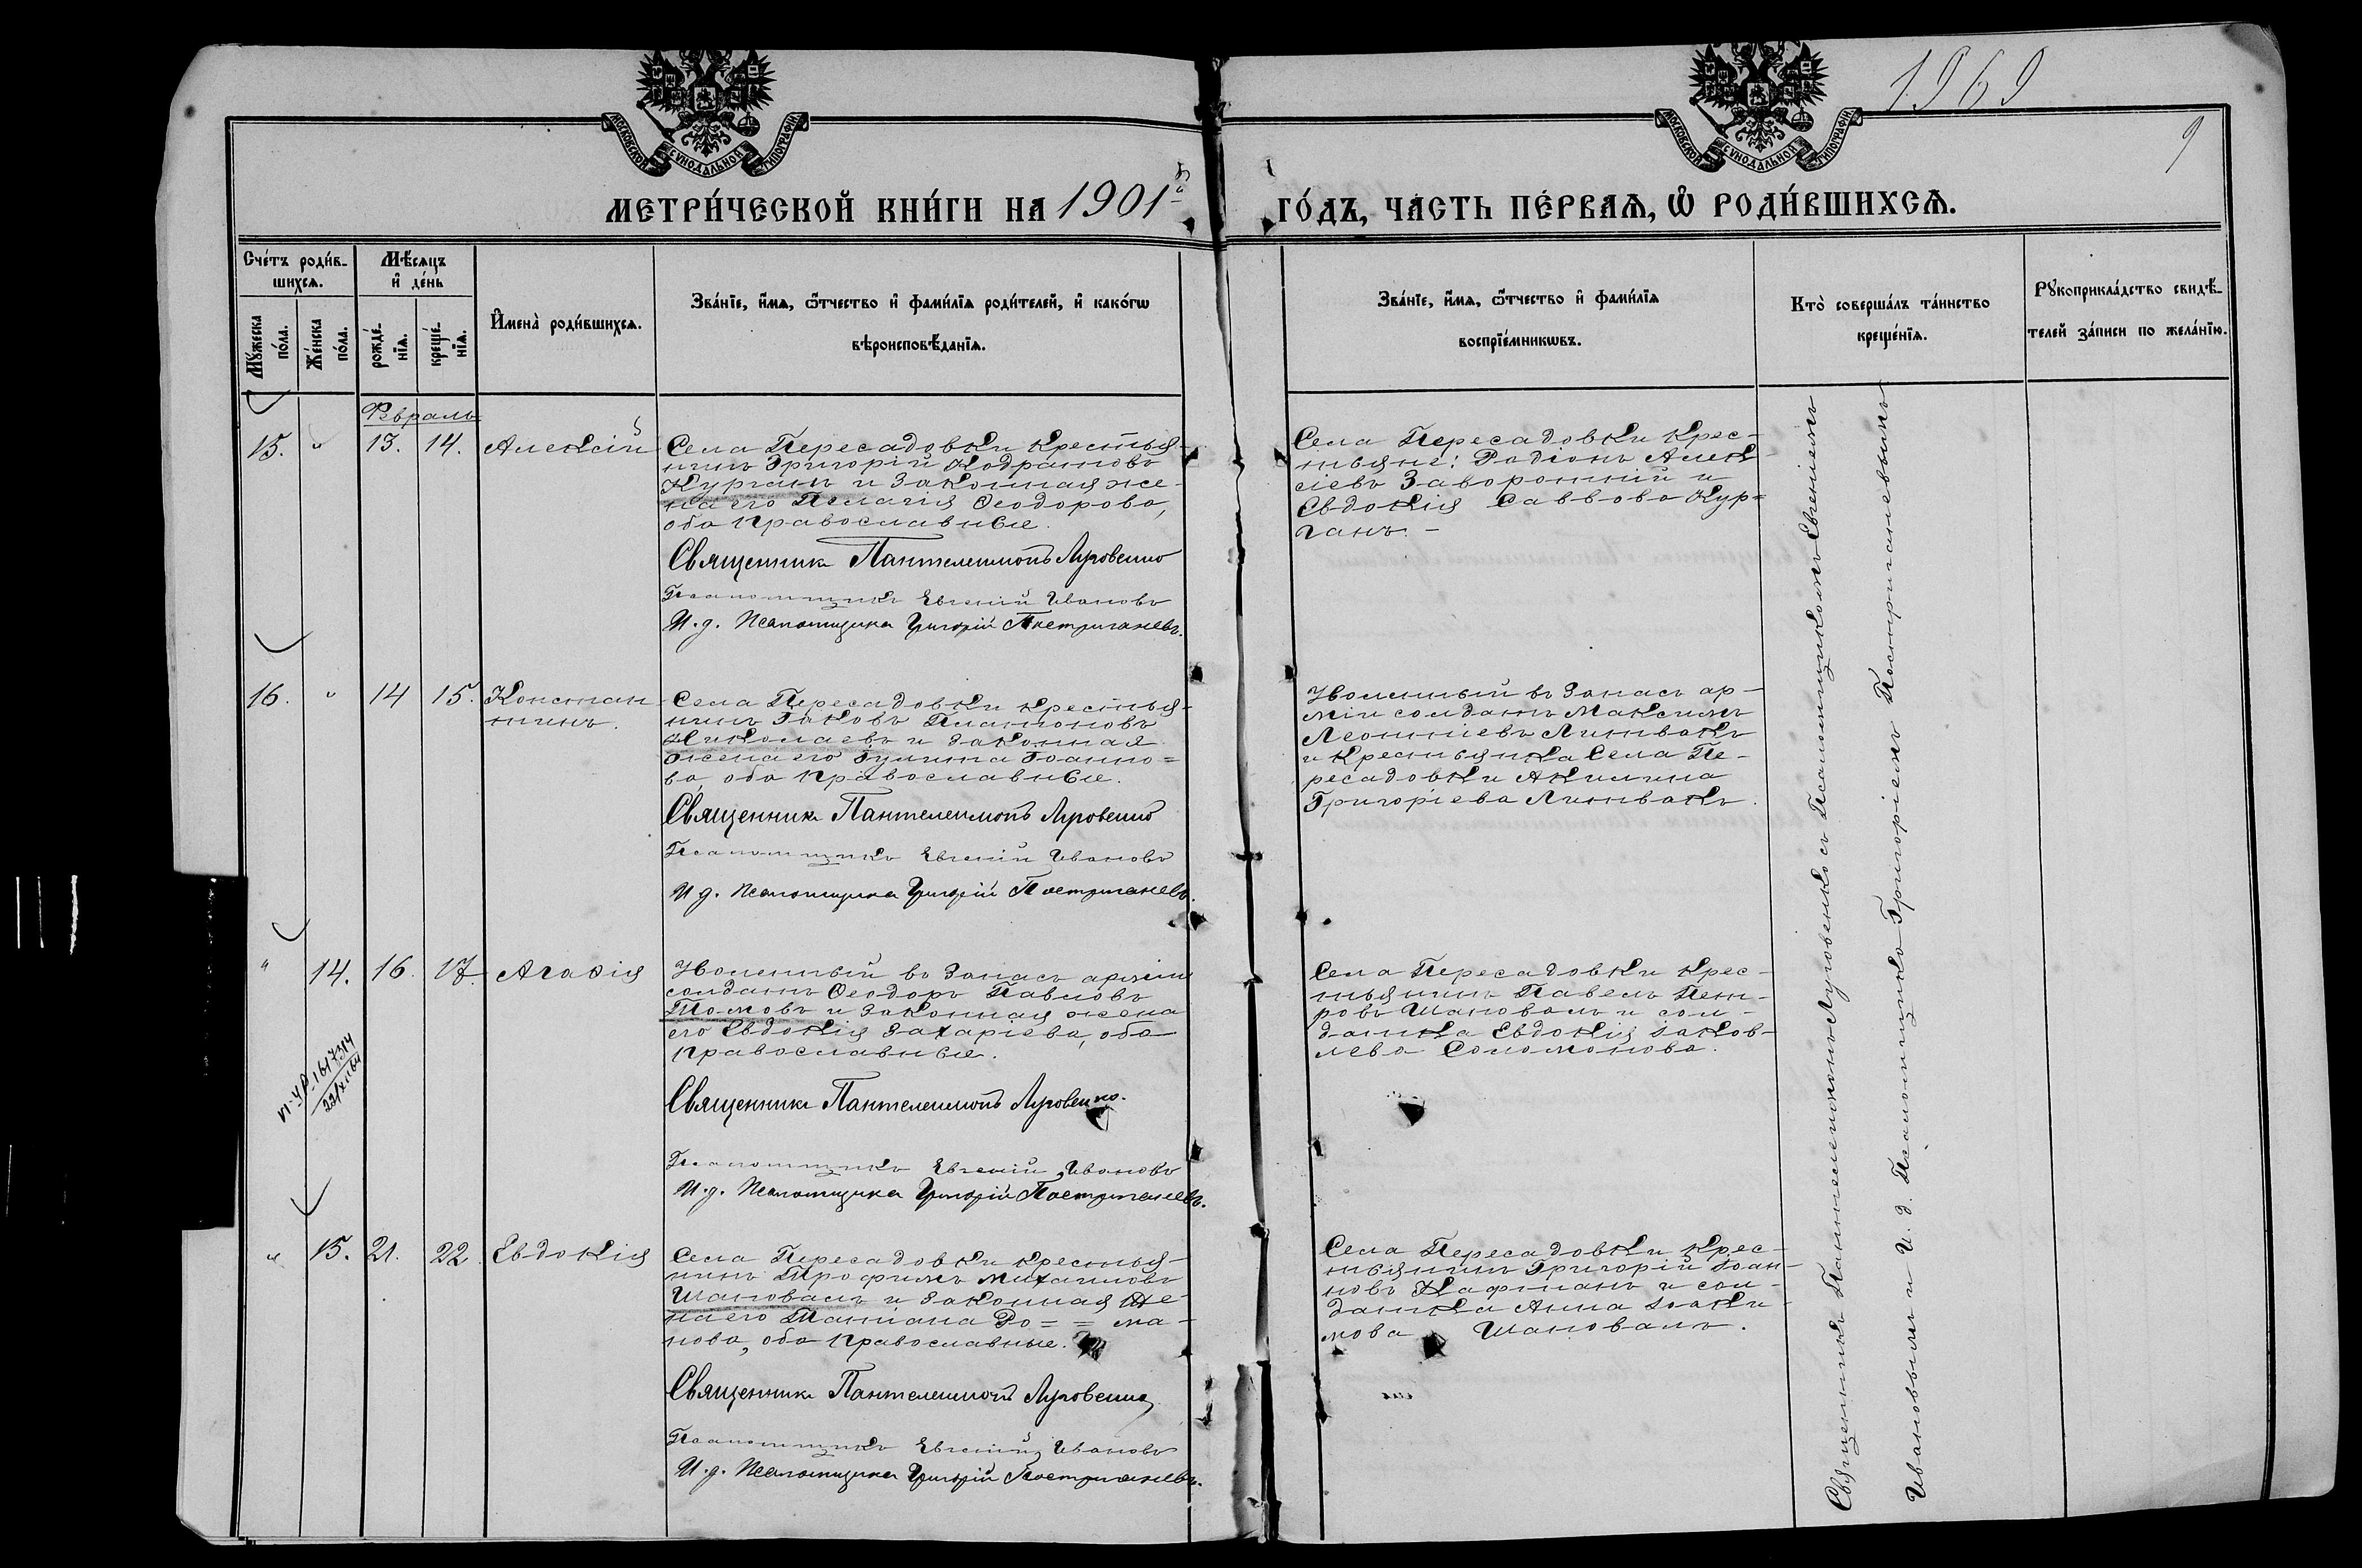 МОСКОВСКОЙ СѴНОДАЛЬНОЙ ТИПОГРАФІИ
МОСКОВСКОЙ СѴНОДАЛЬНОЙ ТИПОГРАФІИ
1969
9
МЕТРИ́ЧЕСКОЙ КНИ́ГИ НА 1901й
ГО́ДЪ, ЧА́СТЬ ПЕ́РВАѦ, Ѡ҆ РОДИ́ВШИХСѦ.
Сче́тъ роди́в-
шихсѧ.
Мѣ́сѧцъ
и҆ де́нь
Мꙋ́жеска
по́ла.
Же́нска
по́ла.
рожде́-
нїѧ.
креще́-
нїѧ.
И҆мена̀ роди́вшихсѧ.
Зва́нїе, и҆́мѧ, ѻ҆́тчество и҆ фами́лїѧ роди́телей, и҆ како́гѡ
вѣроисповѣ́данїѧ.
Зва́нїе, и҆́мѧ, ѻ҆́тчество и҆ фами́лїѧ
воспрїе́мникѡвъ.
Кто̀ соверша́лъ та́инство
креще́нїѧ.
Рꙋкоприкла́дство свидѣ́-
телей за́писи по жела́нїю.
Февраль
15. " 13. 14. Алексій
Села Пересадовки крестья-
нинъ Григорій Кодратовъ
Курганъ и законная же-
на его Пелагія Ѳеодорова,
оба православные.
Священникъ Пантелеимонъ Луговенко
Псаломщикъ Евгеній Ивановъ
И. д. Псаломщика Григорій Постриганевъ.
Села Пересадовки крес-
тьяне: Родіонъ Алек-
сіевъ Заворотній и
Евдокія Саввова Кур=
ганъ. -
16. " 14 15. Констан
тинъ.
Села Пересадовки крестья-
нинъ Іаковъ Платоновъ
Николаевъ и законная
жена его Іулита Іоанно=
ва, оба православные.
Священникъ Пантелеимонъ Луговенко
Псаломщикъ Евгеній Ивановъ
И. д. Псаломщика Григорій Постриганевъ.
Уволенный въ запасъ ар-
міи солдатъ Максимъ
Леонтіевъ Литвакъ
и крестьянка Села Пе-
ресадовки Акилина
Григоріева Литвакъ.
" 14. 16. 17. Агаѳія
Уволенный въ запасъ арміи
солдатъ Ѳеодоръ Павловъ
Томовъ и законная жена
его Евдокія Захаріева, оба
православные.
Священникъ Пантелеимонъ Луговенко.
Псаломщикъ Евгеній Ивановъ
И. д. Псаломщика Григорій Постриганевъ.
1617314
22/XII 64
Села Пересадовки крес-
тьянинъ Павелъ Пет-
ровъ Шаповалъ и сол-
датка Евдокія Іаков-
лева Соломонова.
" 15. 21. 22. Евдокія
Села Пересадовки крестья-
нинъ Трофимъ Михаиловъ
Шаповалъ и законная же-
на его Татіана Ро= = ма-
нова, оба православные.
Священникъ Пантелеимонъ Луговенко
Псаломщикъ Евгеній Ивановъ
И. д. Псаломщика Григорій Постриганевъ.
Села Пересадовки крес-
тьянинъ Григорій Іоан-
новъ Кафтанъ и сол-
датка Анна Іоаки-
мова Шаповалъ.
Священникъ Пантелеимонъ Луговенко съ Псаломщикомъ Евгеніемъ
Ивановымъ и И. д. Псаломщика Григоріемъ Постриганевымъ